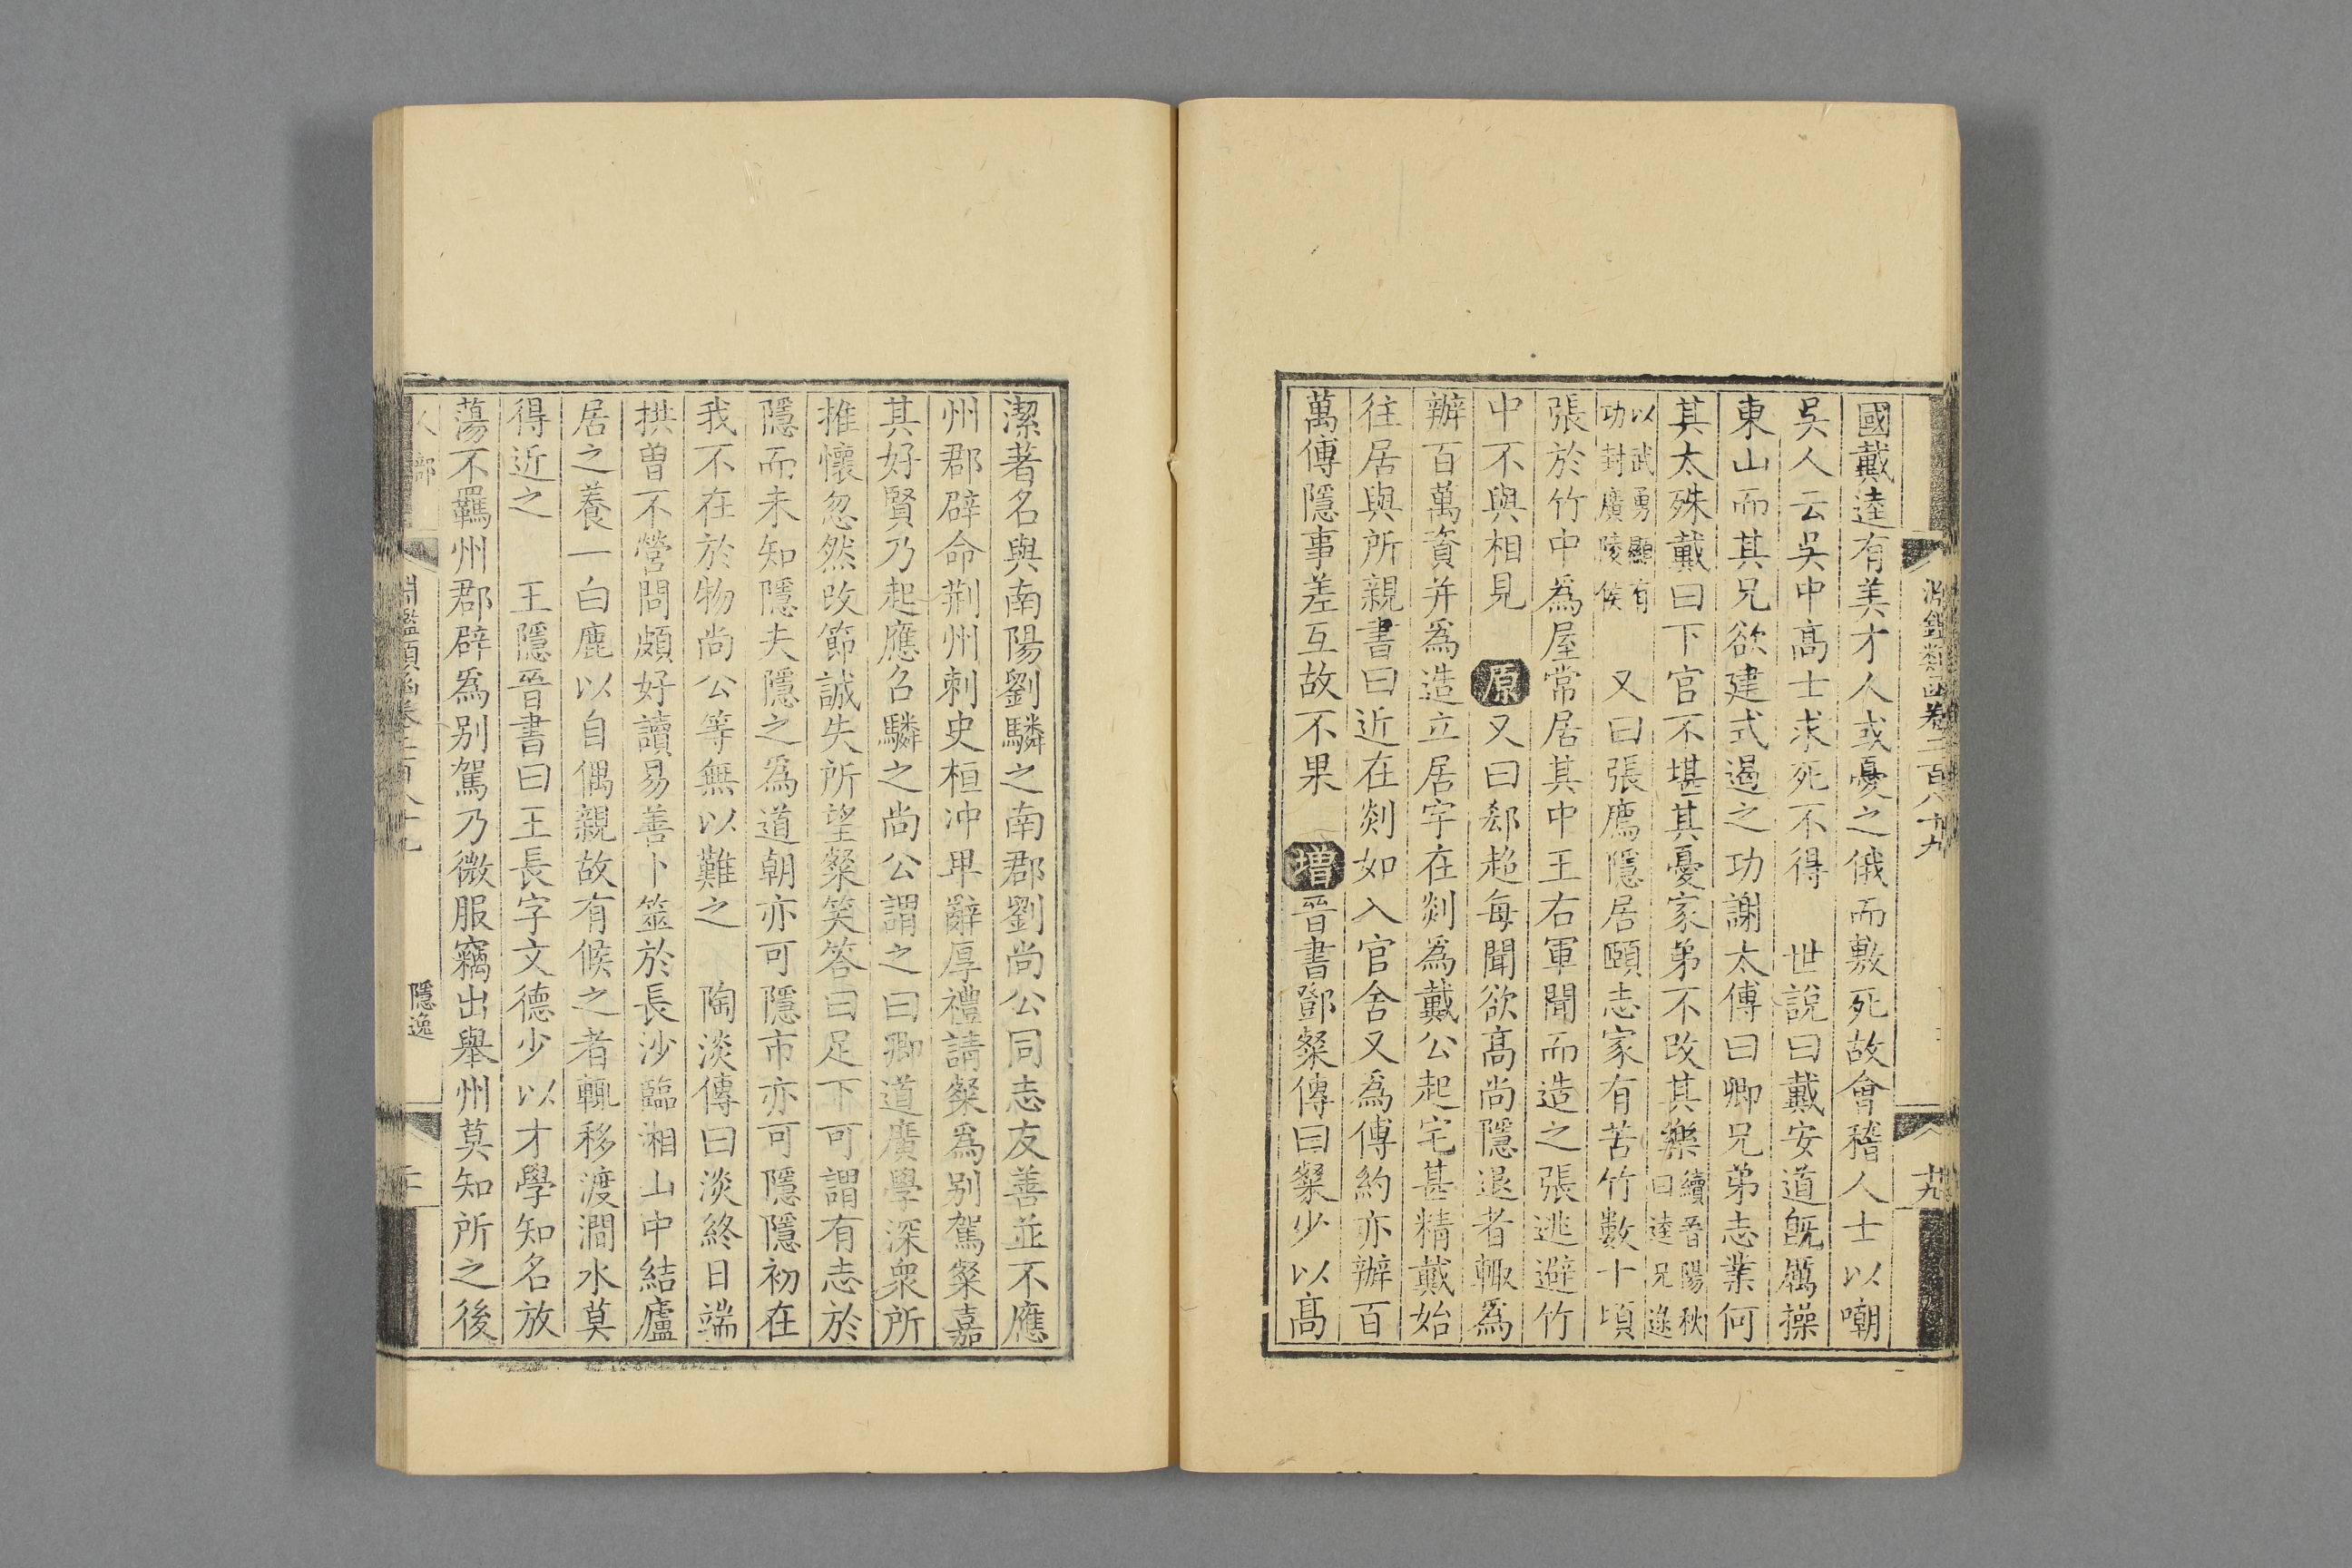 國戴逵有美才人或憂之俄而敷死故會稽人士以嘲
吳人云吳中高士求死不得　世說曰戴安道旣厲操
東山而其兄欲建式遏之功謝太傅曰卿兄弟志業何
其太殊戴曰下官不堪其憂家弟不改其樂續晉陽秋曰逵兄逯
以武勇顯有功封廣陵侯　又曰張廌隱居頤志家有苦竹數十頃
張於竹中為屋常居其中王右軍聞而造之張逃避竹
中不與相見　原又曰郄超每聞欲高尚隱退者輙為
辦百萬資并為造立居宇在剡為戴公起宅甚精戴始
往居與所親書曰近在剡如入官舍又為傅約亦辦百
萬傅隱事差互故不果　增晉書鄧粲傳曰粲少以高
潔著名與南陽劉驎之南郡劉尚公同志友善並不應
州郡辟命荆州刺史桓冲卑辭厚禮請粲爲别駕粲嘉
其好賢乃起應召驎之尚公謂之曰卿道廣學深衆所
推懷忽然改節誠失所望粲笑答曰足下可謂有志於
隱而未知隱夫隱之為道朝亦可隱市亦可隱隱初在
我不在於物尚公等無以難之　陶淡傳曰淡終日端
拱曾不營問頗好讀易善卜筮於長沙臨湘山中結廬
居之養一白鹿以自偶親故有候之者輒移渡澗水莫
得近之　王隱晉書曰王長字文德少以才學知名放
蕩不羈州郡辟爲别駕乃微服竊出舉州莫知所之後
淵鑑類函卷二百八十九
十九
人部
淵鑑類函卷二百八十九
隱逸